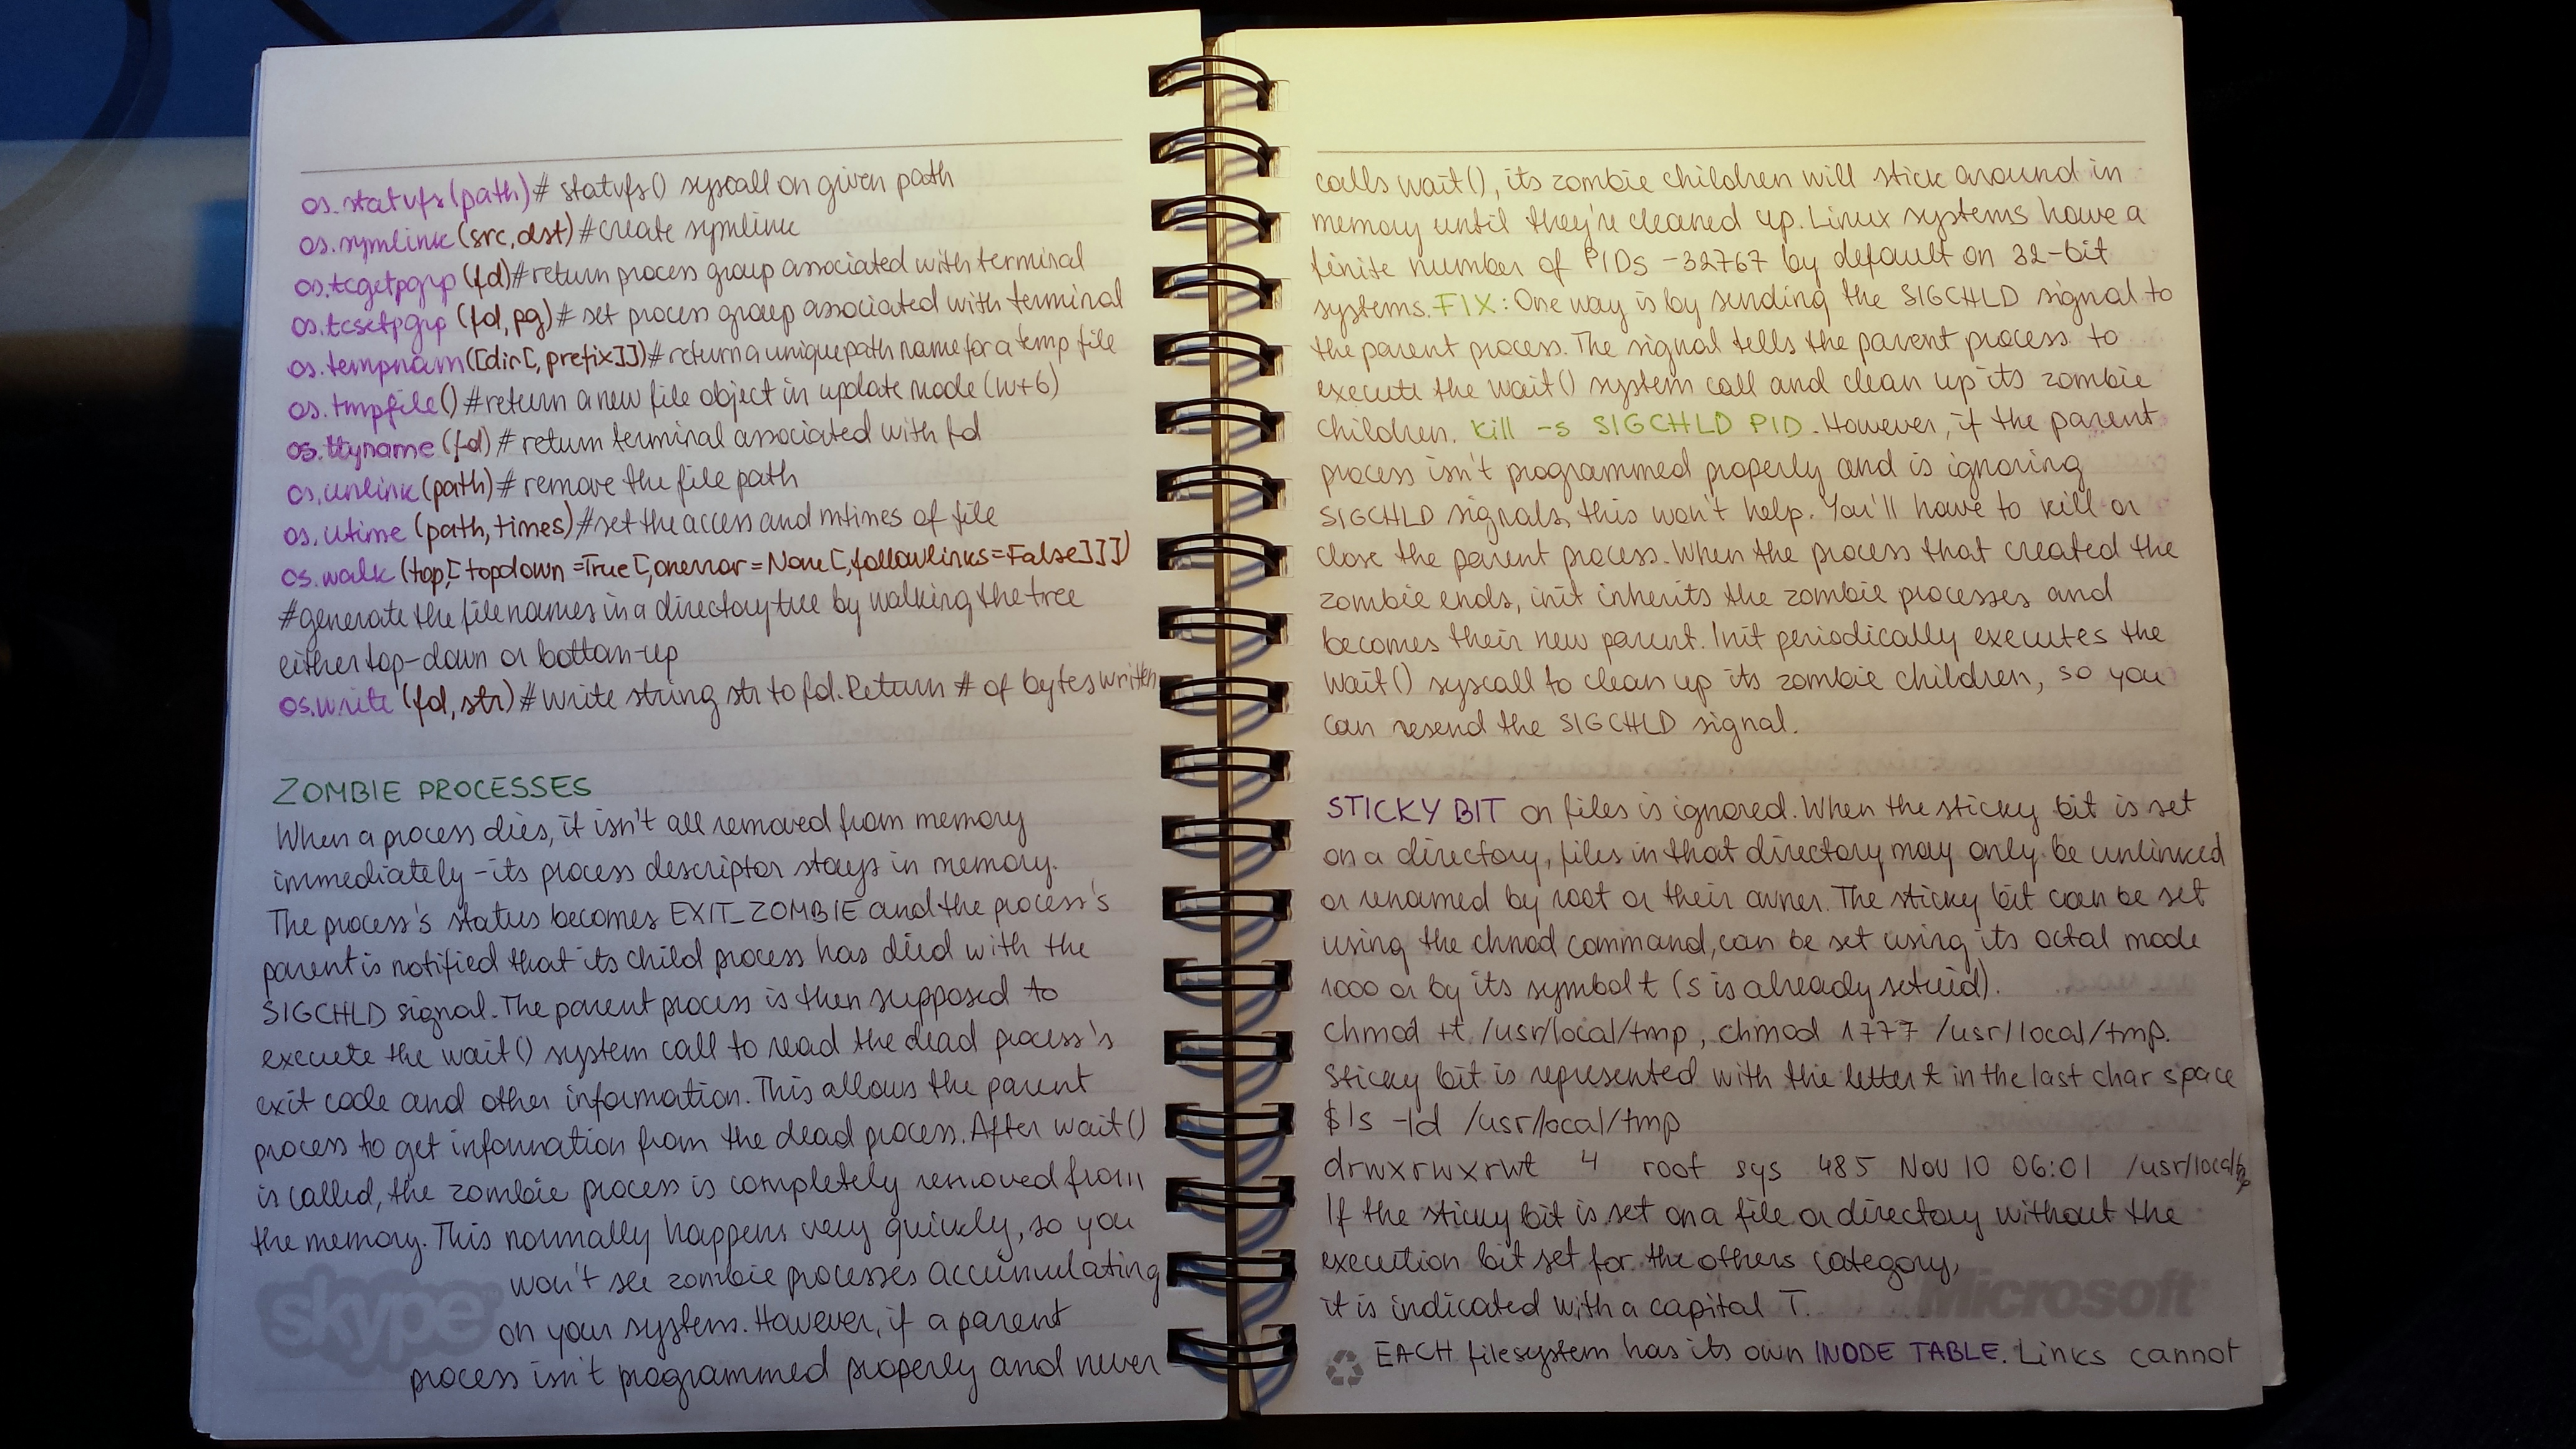 os.statvfs(path)# statvfs() syscall on given path
os.symlink(src,dst)#create symlink
os.tcgetpgrp(fd)#return process group associated with terminal
os.tcsetpgrp(fd,pg)# set process group associated with terminal
os.tempnam([dir[,prefix]])#return a unique path name for a temp file
os.tmpfile()#return a new file object in update mode (w+b)
os.ttyname(fd)# return terminal associated with fd
os.unlink(path)# remove the file path
os.utime (path,times)#set the access and mtimes of file
os.walk (top,[topdown=True[,onerror=None[,followlinks=False]]])
#generate the file names in a directory tree by walking the tree
either top-down or bottom-up
os.write(fd,str)#write string str to fd. Return # of bytes written
ZOMBIE PROCESSES
When a process dies, it isn't all removed from memory
immediately - its process descriptor stays in memory.
The process's status becomes EXIT_ZOMBIE and the process's
parent is notified that its child process has died with the
SIGCHLD signal. The parent process is then supposed to
execute the wait() system call to read the dead process's
exit code and other information. This allows the parent
process to get information from the dead process. After wait()
is called, the zombie process is completely removed from
the memory. This normally happens very quickly, so you
won't see zombie processes accumulating
on your system. However, if a parent
process isn't programmed properly and never
skype
calls wait(), its zombie children will stick around in
memory until they're cleaned up. Linux systems have a
finite number of PIDs - 32767 by default on 32-bit
systems. FIX: One way is by sending the SIGCHLD signal to
the parent process. The signal tells the parent process to
execute the wait() system call and clean up its zombie
children. kill -s SIGCHLD PID. However, if the parent
process isn't programmed properly and is ignoring
SIGCHLD signals, this won't help. You'll have to kill or
close the parent process. When the process that created the
zombie ends, init inherits the zombie processes and
becomes their new parent. Init periodically executes the
wait() syscall to clean up its zombie children, so you
can resend the SIGCHLD signal.
STICKY BIT on files is ignored. When the sticky bit is set
on a directory, files in that directory may only be unlinked
or renamed by root or their owner. The sticky bit can be set
using the chmod command, can be set using its octal mode
1000 or by its symbol t (s is already setuid).
chmod +t /usr/local/tmp, chmod 1777 /usr/local/tmp.
Sticky bit is represented with the letter t in the last char space
$ls -ld /usr/local/tmp
drwxrwxrwt 4 root sys 485 Nov 10 06:01 /usr/local/tmp
If the sticky bit is set on a file or directory without the
execution bit set for the others category,
it is indicated with a capital T.
Microsoft
EACH filesystem has its own INODE TABLE. Links cannot